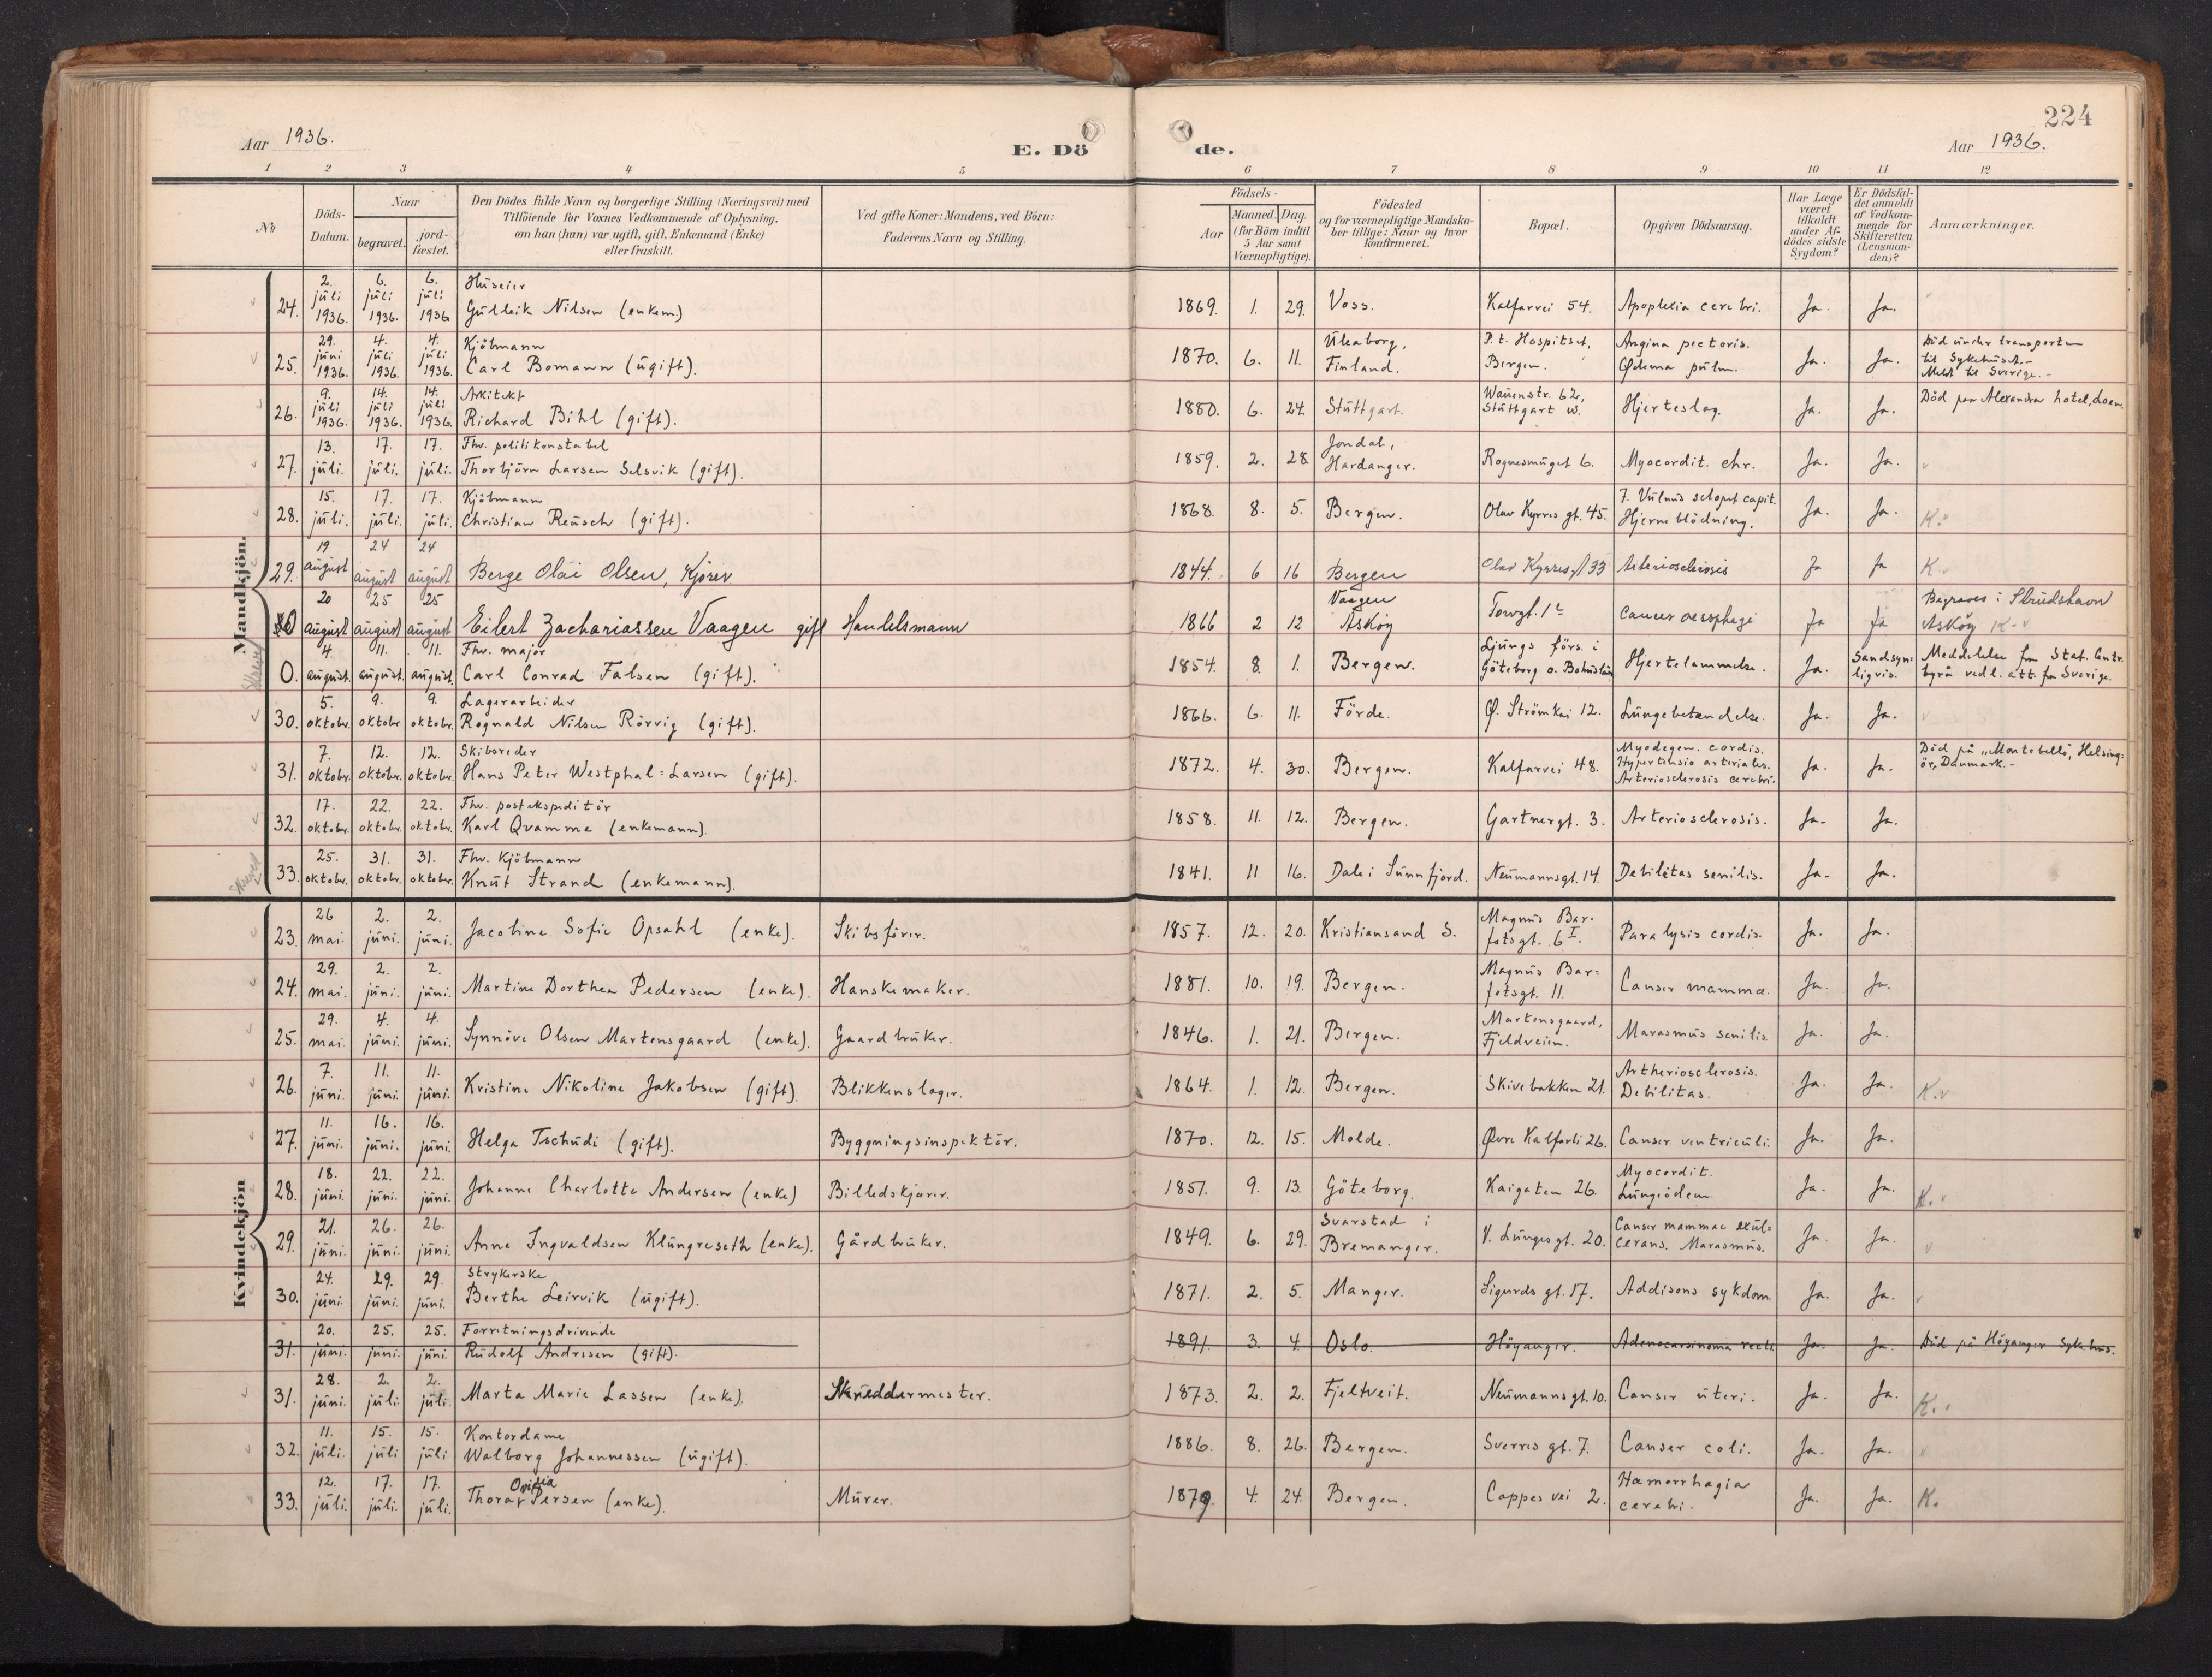 224
Aar 1936.
E. Döde.
Aar 1936.
1 2 3 4 5 6 7 8 9 10 11 12
№
Döds-Datum.
Naar
begravet.
jordfæstet.
Den Dödes fulde Navn og borgerlige Stilling (Næringsvei) med
Tilföiende for Voxnes Vedkommende af Oplysning,
om han (hun) var ugift, gift, Enkemand (Enke)
eller fraskilt.
Ved gifte Koner: Mandens, ved Börn:
Faderens Navn og Stilling.
Födsels-
Aar
Maaned. Dag.
(for Börn indtil
5 Aar samt
Værnepligtige).
Födested
og for værnepligtige Mandska-
ber tillige: Naar og hvor
Konfirmeret.
Bopæl.
Opgiven Dödsaarsag.
Har Læge
været
tilkaldt
under Af-
dödes sidste
Sygdom?
Er Dödsfal-
det anmeldt
af Vedkom-
mende for
Skifteretten
(Lensman-
den)?
Anmærkninger.
Mandkjön.
24. 2. juli 1936. 6. juli 1936. 6. juli 1936 Huseier
Gulleik Nilsen (enkem) 1869. 1. 29. Voss. Kalfarvei 54. Apoplexia cerebri. Ja. Ja.
25. 29. juni 1936. 4. juli 1936. 4. juli 1936. Kjöbmann
Carl Bomann (ugift). 1870. 6. 11. Uleaborg, Finland. P.t. Hospitset, Bergen. Angina pectoris. Ødema pulm. Ja. Ja. Död under transporten til Sykehuset.- Meldt til Sverige.-
26. 9. juli 1936. 14. juli 1936. 14. juli 1936. Arkitekt
Richard Bihl (gift). 1880. 6. 24. Stuttgart. 62, Stuttgart W. Hjerteslag. Ja. Ja. Död paa Alexandra hotel, Loen.
27. 13. juli. 17. juli. 17. juli. Fhv. politikonstabel
Thorbjörn Larsen Selsvik (gift). 1859. 2. 28. Jondal, Hardanger. Rognesmuget 6. Myocordit. chr. Ja. Ja.
28. 15. juli. 17. juli. 17. juli. Kjöbmann
Christian Reusch (gift). 1868. 8. 5. Bergen. Olav Kyrres gt. 45. Vulnus sclopet capit. Hjerneblödning. Ja. Ja. K.
29. 19 august 24 august 24 august Berge Olai Olsen, Kjörer 1844. 6 16 Bergen Olav Kyrresgt 33 Arteriosclerosis Ja Ja K.
20 august 25 august 25 august Eilert Zachariassen Vaagen gift Handelsmann 1866 2 12 Vaagen Asköy Torvgt. 1 cancer oesophagi Ja Ja Begraves i Strudshavn Asköy K.
Skrevet
0. 4. august. 11. august. 11. august. Fhv. major
Carl Conrad Falsen (gift). 1854. 8. 1. Bergen. Ljungs förs. i Göteborg o. Bohuslän Hjertelammelse. Ja. Sandsynligvis. Meddelelse fra Stat. Centr. byrå vedl. att. fra Sverige.
30. 5. oktober. 9. oktober 9. oktober Lagerarbeider
Rognald Nilsen Rörvig (gift). 1866. 6. 11. Förde. Ø. Strömkai 12. Lungebetændelse. Ja. Ja.
31. 7. oktober. 12. oktober. 12. oktober. Skibsreder
Hans Peter Westphal-Larsen (gift). 1872. 4. 30. Bergen. Kalfarvei 48. Myodegen. cordis. Hypertensio arterialis. Arteriosclerosis cerebri. Ja. Ja. Död på "Montebello", Helsingör, Danmark.-
32. 17. oktober. 22. oktober. 22. oktober. Fhv. postekspeditör
Karl Qvamme (enkemann). 1858. 11. 12. Bergen. Gartnergt. 3. Arteriosclerosis. Ja. Ja.
Skrevet
33. 25. oktober. 31. oktober. 31. oktober. Fhv. kjöbmann
Knut Strand (enkemann). 1841. 11 16. Dale i Sunnfjord. Neumannsgt. 14. Debilitas senilis. Ja. Ja.
Kvindekjön
23. 26 mai. 2. juni. 2. juni. Jacobine Sofie Opsahl (enke). Skibsförer. 1857. 12. 20. Kristiansand S. Magnus Barfotsgt. 6 I. Paralysis cordis. Ja. Ja.
24. 29. mai. 2. juni. 2. juni. Martine Dorthea Pedersen (enke). Hanskemaker. 1881. 10. 19. Bergen. Magnus Barfotsgt. 11. Canser mamma. Ja. Ja.
25. 29. mai. 4. juni. 4. juni. Synnöve Olsen Martensgaard (enke). Gaardbruker. 1846. 1. 21. Bergen. Martensgaard, Fjeldveien. Marasmus senilis. Ja. Ja.
26. 7. juni. 11. juni. 11. juni. Kristine Nikoline Jakobsen (gift). Blikkenslager. 1864. 1. 12. Bergen. Skivebakken 21. Artheriosclerosis. Debilitas. Ja. Ja. K.
27. 11. juni. 16. juni. 16. juni. Helga Tschudi (gift). Byggningsinspektör. 1870. 12. 15. Molde. Øvre Kalfarli 26. Canser ventriculi. Ja. Ja.
28. 18. juni. 22. juni. 22. juni. Johanne Charlotte Andersen (enke) Billedskjærer. 1851. 9. 13. Göteborg. Kaigaten 26. Myocordit. Lungeödem. Ja. Ja. K.
29. 21. juni. 26. juni. 26. juni. Anne Ingvaldsen Klungreseth (enke). Gårdbruker. 1849. 6. 29. Svarstad i Bremanger. V. Lungegt. 20. Canser mammae exulcerans. Marasmus. Ja. Ja.
30. 24. juni. 29. juni. 29. juni. Strykerske
Berthe Leirvik (ugift). 1871. 2. 5. Manger. Sigurds gt. 17. Addisons sykdom. Ja. Ja.
31. 20. juni. 25. juni. 25. juni. Forretningsdrivende
Rudolf Andresen (gift). 1891. 3. 4. Oslo. Höyanger. Adenocarsinoma recti Ja. Ja. Död på Höyanger Sykehus.
31. 28. juni. 2. juli. 2. juli. Marta Marie Lassen (enke). Skreddermester. 1873. 2. 2. Fjeltveit. Neumannsgt. 10. Canser uteri. Ja. Ja. K.
32. 11. juli. 15. juli 15. juli Kontordame
Walborg Johannessen (ugift). 1886. 8. 26. Bergen. Sverres gt. 7. Canser coli. Ja. Ja.
33. 12. juli. 17. juli. 17. juli. Thora Ovidia Persen (enke). Murer. 1879. 4. 24. Bergen. Cappes vei 2. Hæmorrhagia cerebri. Ja. Ja. K.